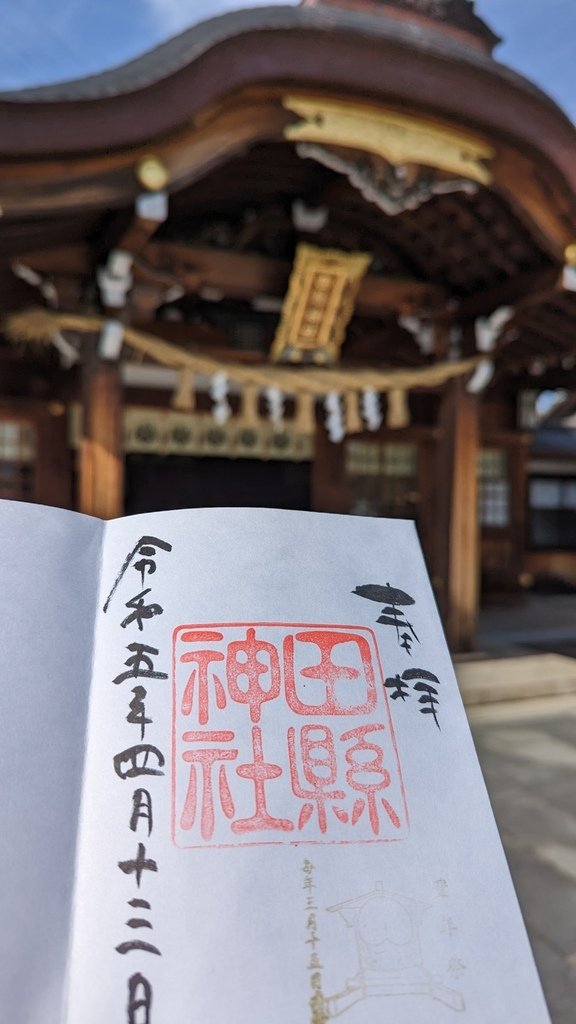 奉拝
田縣
神社
豊年祭
毎年三月十五日
令和五年四月十二日